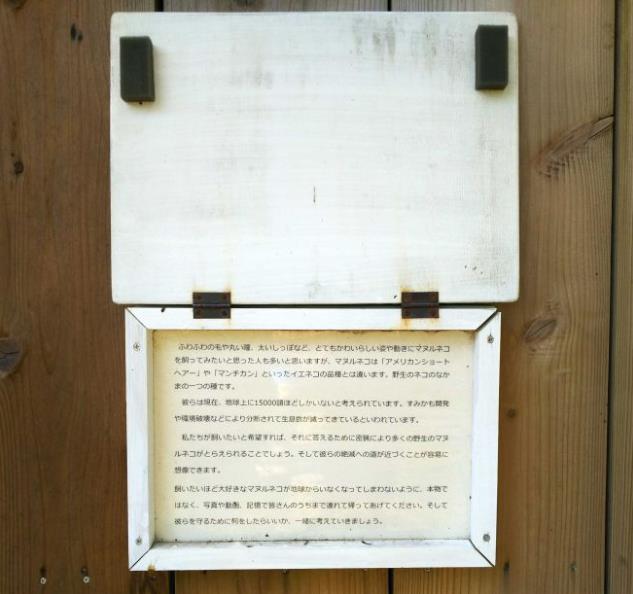 ふわふわの毛や丸い瞳、太いしっぽなど、とてもかわいらしい姿や動きにマヌルネコ
を飼ってみたいと思った人も多いと思いますが、マヌルネコは「アメリカンショート
ヘアー」や「マンチカン」といったイエネコの品種とは違います。野生のネコのなか
まの一つの種です。
彼らは現在、地球上に15000頭ほどしかいないと考えられています。すみかも開発
や環境破壊などにより分断されて生息数が減ってきているといわれています。
私たちが飼いたいと希望すれば、それに答えるために密猟により多くの野生のマヌ
ルネコがとらえられることでしょう。そして彼らの絶滅への道が近づくことが容易に
想像できます。
飼いたいほど大好きなマヌルネコが地球からいなくなってしまわないように、本物で
はなく、写真や動画、記憶で皆さんのうちまで連れて帰ってあげてください。そして
彼らを守るために何をしたらいいか、一緒に考えていきましょう。